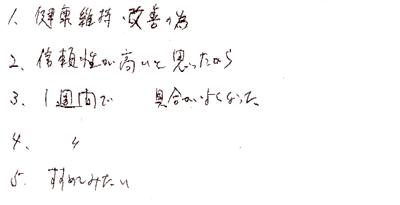 1. 健康維持・改善の為
2、信頼性が高いと思ったから
3. 1週間で 具合がよくなった
4、 〃
5. すすめてみたい